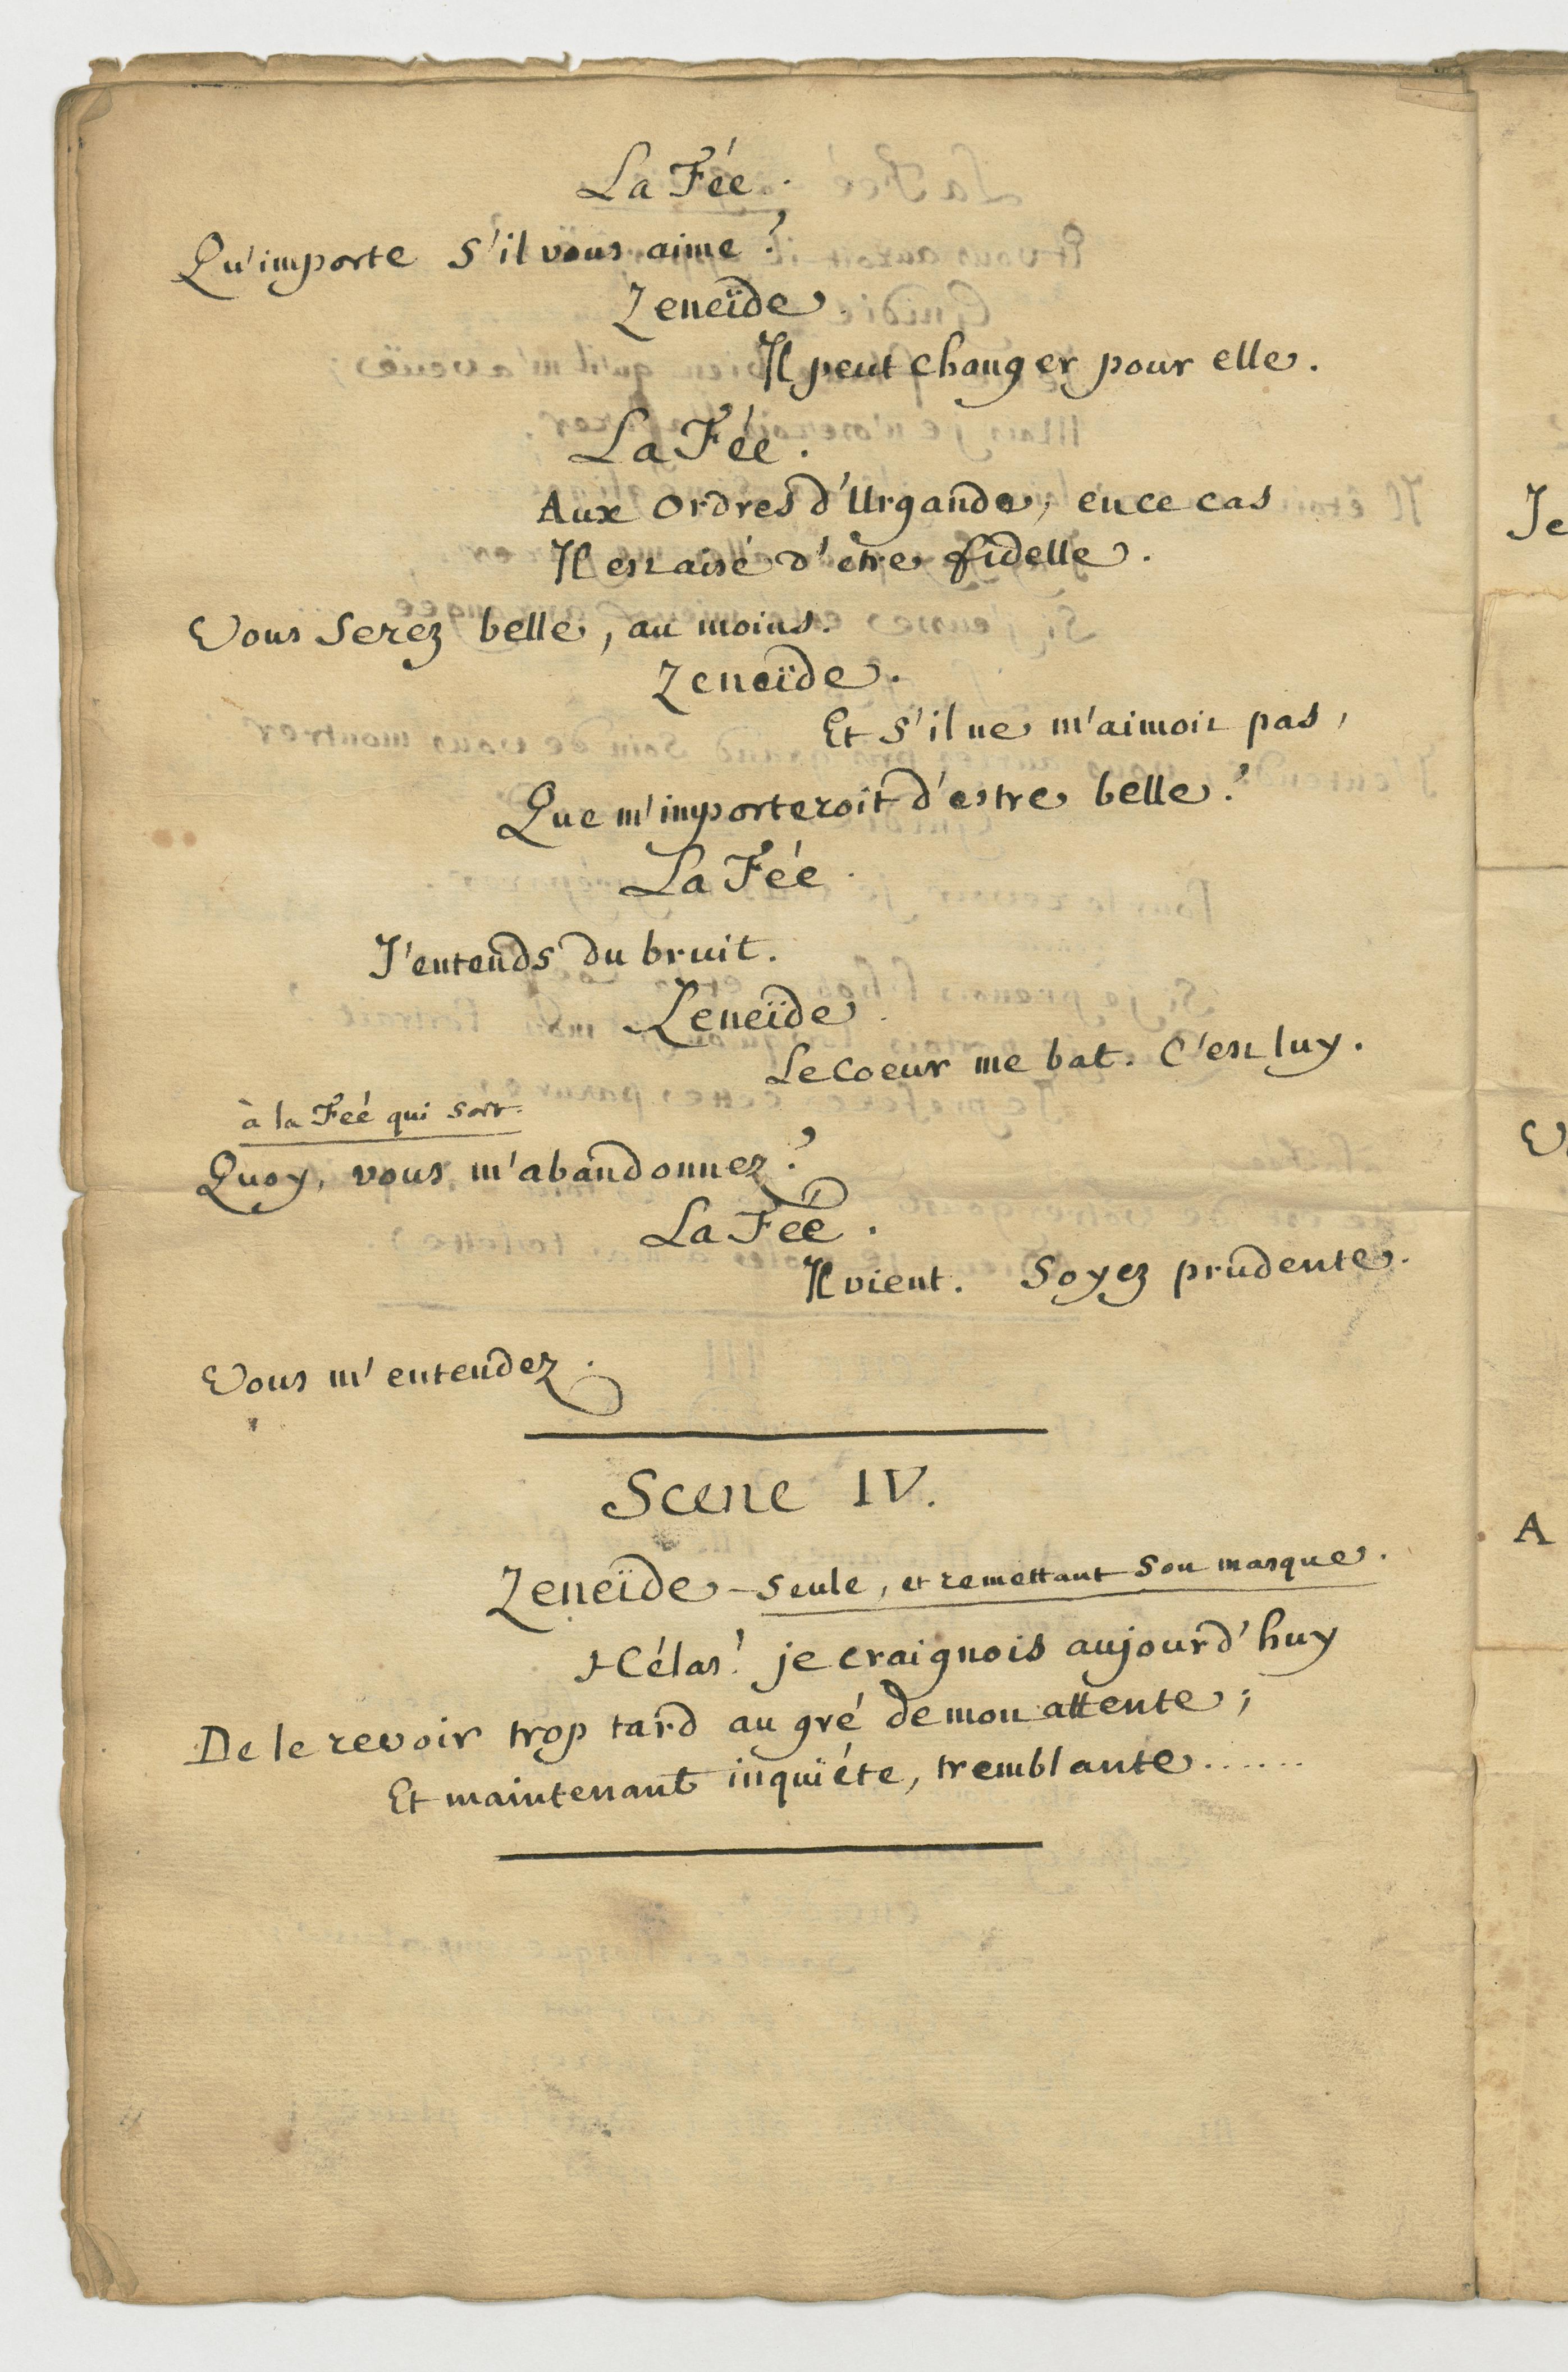 La Fée.
Qu'importe s'il vous aime?
Zeneïde.
Il peut changer pour elle.
La Fée.
Aux ordres d'Urgande, en ce cas
Il est aisé d'être fidelle.
Vous serez belle, au moins.
Zeneïde.
Et s'il ne m'aimoit pas,
Que m'importeroit d'estre belle?
La Fée.
J'entends du bruit.
Zeneïde.
Le coeur me bat. C'est luy.
à la Feé qui sort.
Quoy, vous m'abandonnez?
La Feé.
Il vient. Soyez prudente.
Vous m'entendez.
Scene IV.
Zeneïde - seule, et remettant son masque.
Hélas! je craignois aujourd'huy
De le revoir trop tard au gré de mon attente;
Et maintenant inquiéte, tremblante.......
Je
A